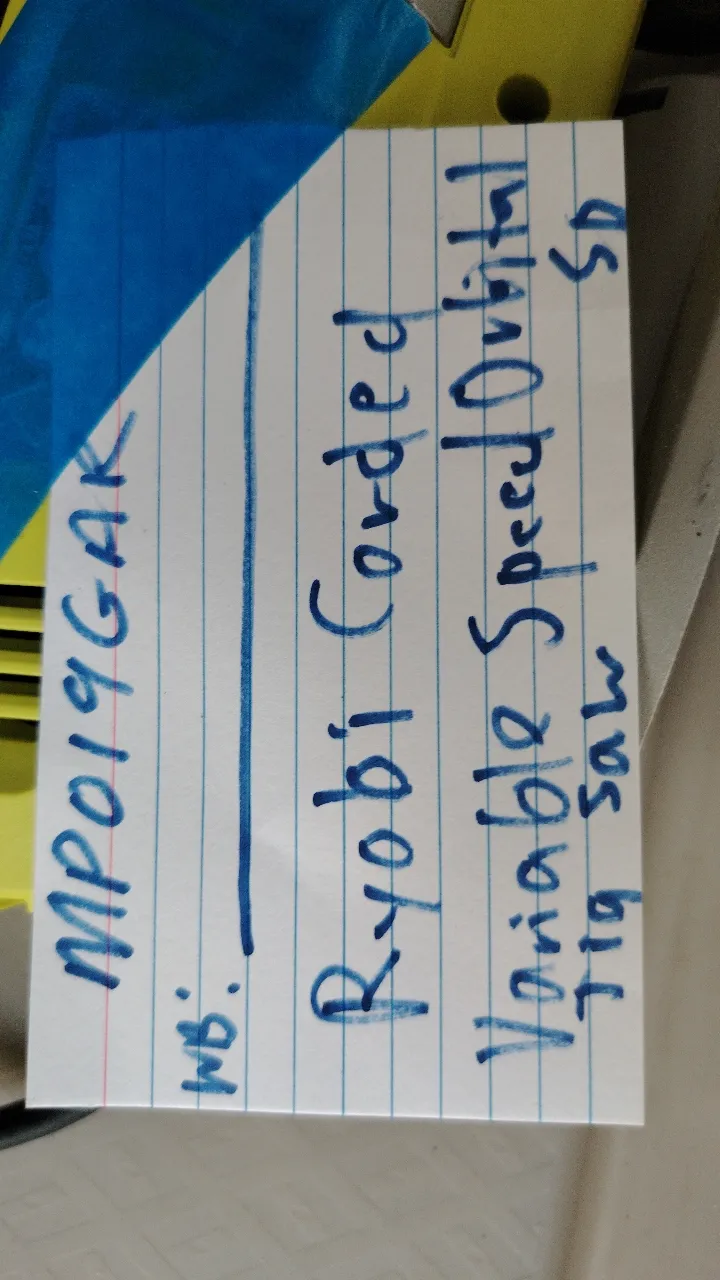 MP019GAK
WB:
Ryobi Corded
Variable Speed Orbital
Jig Saw SD